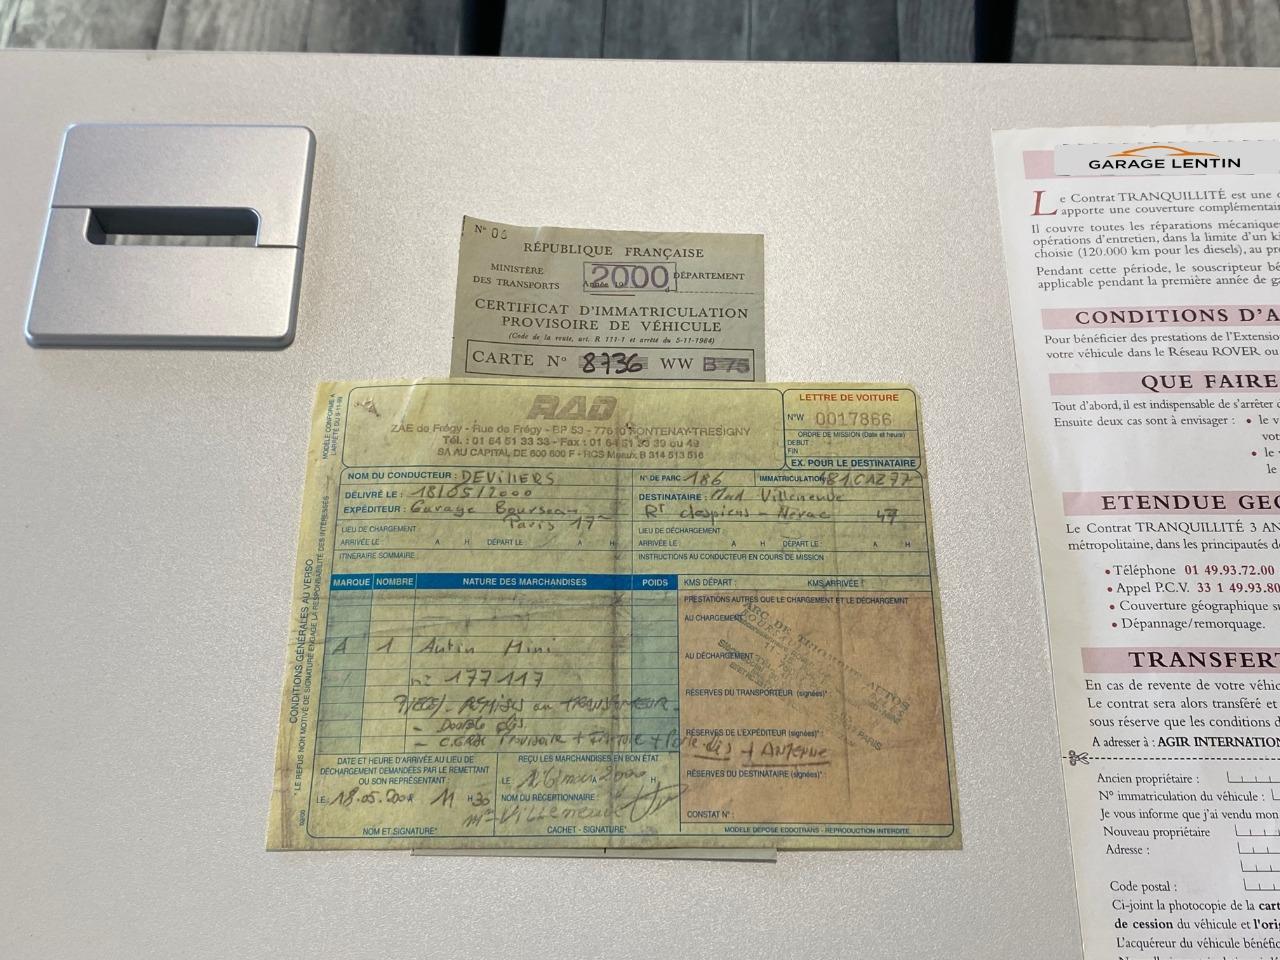 N° 05
RÉPUBLIQUE FRANÇAISE
MINISTÈRE
DES TRANSPORTS
2000
DÉPARTEMENT
CERTIFICAT D'IMMATRICULATION
PROVISOIRE DE VÉHICULE
(Code de la route, art. R 111-1 et arrêté du 5-11-1984)
CARTE N° 8736 WW B 75
MODÈLE CONFORME A
L'ARRÊTÉ DU 9-11-99
RAD
ZAE de Frégy - Rue de Frégy - BP 53 - 77610 FONTENAY-TRESIGNY
Tél. : 01 64 51 33 33 - Fax : 01 64 51 33 39 ou 49
SA AU CAPITAL DE 600 600 F - RCS Meaux B 314 513 516
LETTRE DE VOITURE
N°W 0017866
ORDRE DE MISSION (Date et heure)
DEBUT
FIN
EX. POUR LE DESTINATAIRE
NOM DU CONDUCTEUR : DEVILLERS
DÉLIVRÉ LE : 18/05/2000
EXPÉDITEUR : Garage Boursean
Paris 17
LIEU DE CHARGEMENT
ARRIVÉE LE : A H DÉPART LE : A H
ITINÉRAIRE SOMMAIRE
N° DE PARC 186 IMMATRICULATION 481CAZ77
DESTINATAIRE : Mad Villeneuve
Rt despiens - Nérac 47
LIEU DE DÉCHARGEMENT :
ARRIVÉE LE : A H DÉPART LE : A H
INSTRUCTIONS AU CONDUCTEUR EN COURS DE MISSION
MARQUE NOMBRE NATURE DES MARCHANDISES POIDS
KMS DÉPART : KMS ARRIVÉE :
PRESTATIONS AUTRES QUE LE CHARGEMENT ET LE DÉCHARGEMNT
AU CHARGEMENT
AU DÉCHARGEMENT
A 1 Autin Mini
n° 177117
Pièces - REMISES au TRANSPORTEUR -
- Double clés
- C.GRISE Provisoire + Facture + Porte clés + ANTENNE
ARC DE TRIOMPHE AUTOS
PARIS
RÉSERVES DU TRANSPORTEUR (signées)*
RÉSERVES DE L'EXPÉDITEUR (signées)* :
RÉSERVES DU DESTINATAIRE (signées)*
CONSTAT N° :
DATE ET HEURE D'ARRIVÉE AU LIEU DE
DÉCHARGEMENT DEMANDÉES PAR LE REMETTANT
OU SON REPRÉSENTANT :
LE : 18.05.200 A 11 H 30
NOM ET SIGNATURE*
REÇU LES MARCHANDISES EN BON ÉTAT
LE 26 mai A 2000 H
NOM DU RÉCEPTIONNAIRE :
Mme Villeneuve
CACHET - SIGNATURE*
MODÈLE DÉPOSÉ EDDOTRANS - REPRODUCTION INTERDITE
CONDITIONS GÉNÉRALES AU VERSO
* LE REFUS NON MOTIVÉ DE SIGNATURE ENGAGE LA RESPONSABILITÉ DES INTÉRESSÉS
GARAGE LENTIN
Le Contrat TRANQUILLITÉ est une
apporte une couverture complémentai
Il couvre toutes les réparations mécanique
opérations d'entretien, dans la limite d'un ki
choisie (120.000 km pour les diesels), au pr
Pendant cette période, le souscripteur bé
applicable pendant la première année de ga
CONDITIONS D'A
Pour bénéficier des prestations de l'Extensio
votre véhicule dans le Réseau ROVER ou
QUE FAIRE
Tout d'abord, il est indispensable de s'arrêter
Ensuite deux cas sont à envisager : • le v
vot
• le
le
ETENDUE GEO
Le Contrat TRANQUILLITÉ 3 AN
métropolitaine, dans les principautés de
• Téléphone 01 49.93.72.00
• Appel P.C.V. 33 1 49.93.80
• Couverture géographique su
• Dépannage/remorquage.
TRANSFERT
En cas de revente de votre véhic
Le contrat sera alors transféré et
sous réserve que les conditions d
A adresser à : AGIR INTERNATION
Ancien propriétaire :
N° immatriculation du véhicule :
Je vous informe que j'ai vendu mon
Nouveau propriétaire
Adresse :
Code postal :
Ci-joint la photocopie de la cart
de cession du véhicule et l'ori
L'acquéreur du véhicule bénéfic